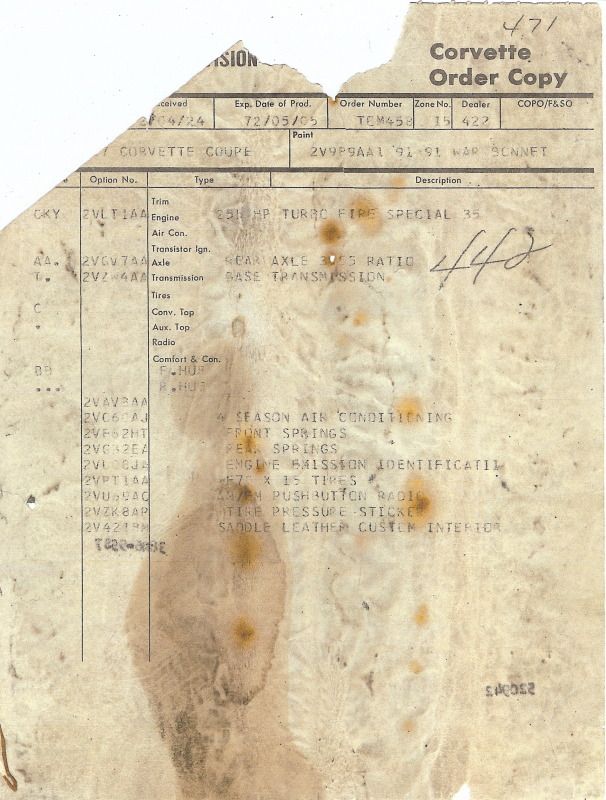 471
ISION
Corvette
Order Copy
ceived Exp. Date of Prod. Order Number Zone No. Dealer COPO/F&SO
/04/24 72/05/05 15 422
Paint
7 CORVETTE COUPE 2V9P9AA1 91-91 WAR BONNET
Option No. Type Description
Trim
CKY 2VLT1AA Engine HP TURBO FIRE SPECIAL 35
Air Con.
Transistor Ign.
AA. 2VGV7AA Axle REAR AXLE RATIO
442
T. 2VZW4AA Transmission BASE TRANSMISSION
Tires
C Conv. Top
Aux. Top
Radio
Comfort & Con.
BB F.HUB
... R.HUB
2VAV3AA
2VC60AJ 4 SEASON AIR CONDITIONING
FRONT SPRINGS
REAR SPRINGS
ENGINE EMISSION IDENTIFICATI
2VPT1AA X 15 TIRES
AM/FM PUSHBUTTON RADIO
2VZK8AP TIRE PRESSURE STICKER
SADDLE LEATHER CUSTOM INTERIOR
520942